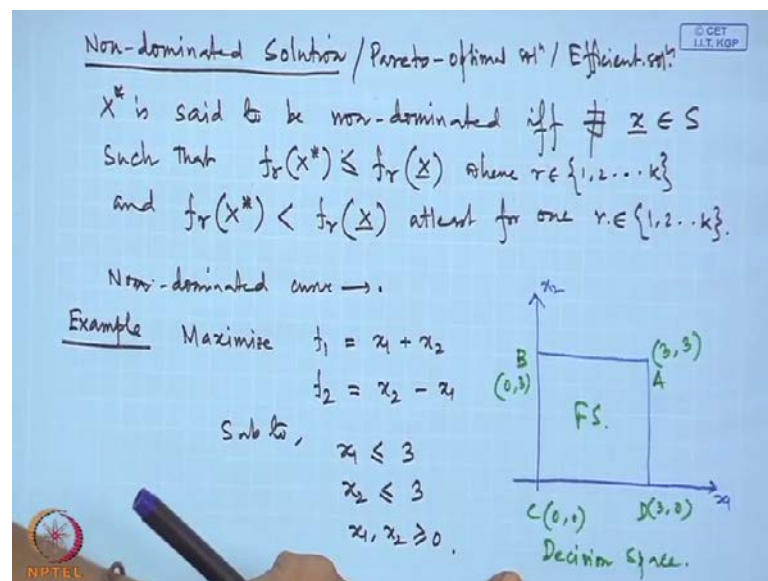 © CET
I.I.T. KGP
Non-dominated Solution / Pareto-optimal solⁿ / Efficient solⁿ.
X* is said to be non-dominated iff ∄ x ∈ S
Such that f_r(X*) ≤ f_r(X) where r ∈ {1, 2 ... k}
and f_r(X*) < f_r(X) atleast for one r ∈ {1, 2 .. k}.
Non-dominated curve →.
Example Maximize f₁ = x₁ + x₂
f₂ = x₂ - x₁
Sub to,
x₁ ≤ 3
x₂ ≤ 3
x₁, x₂ ≥ 0.
x₂
B
(0,3)
(3,3)
A
FS.
C(0,0)
D(3,0)
x₁
Decision Space.
NPTEL